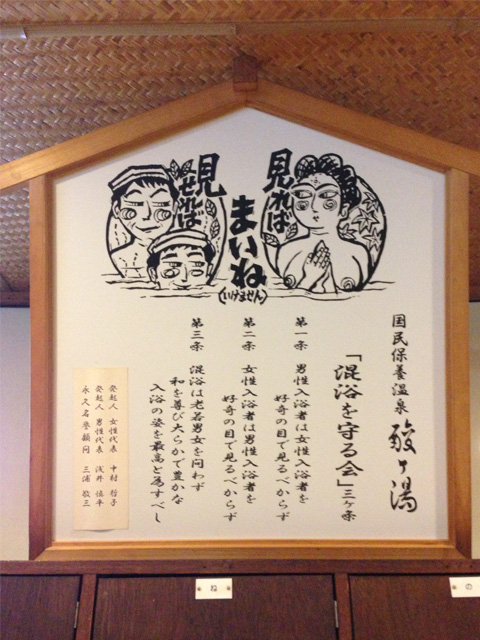 見れば
見せれば
まいね
(いけません)
国民保養温泉 酸ヶ湯
「混浴を守る会」三ヶ条
第一条 男性入浴者は女性入浴者を
好奇の目で見るべからず
第二条 女性入浴者は男性入浴者を
好奇の目で見るべからず
第三条 混浴は老若男女を問わず
和を尊び大らかで豊かな
入浴の姿を最高と為すべし
発起人 女性代表 中村 哲子
発起人 男性代表 浅井 慎平
永久名誉顧問 三浦 敬三
ね
の